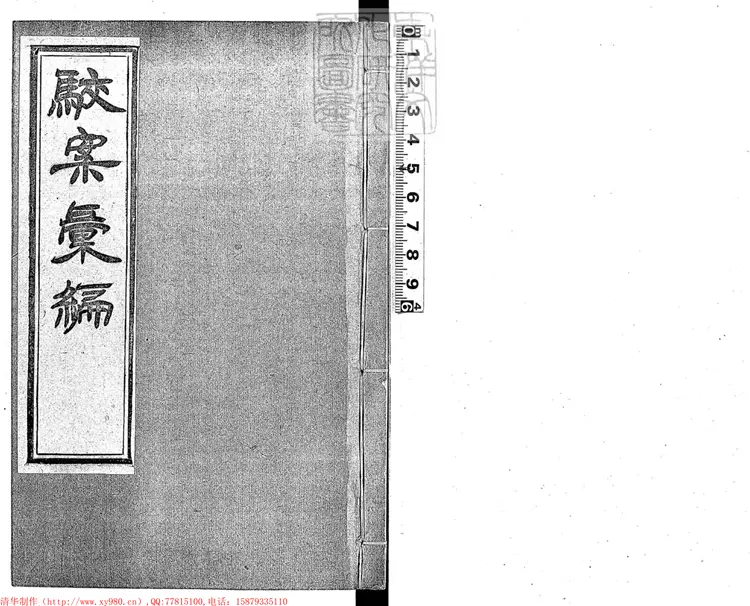 駁案彙編
0 1 2 3 4 5 6 7 8 9
清华制作（http://www.xy980.cn）,QQ:77815100,电话：15879335110